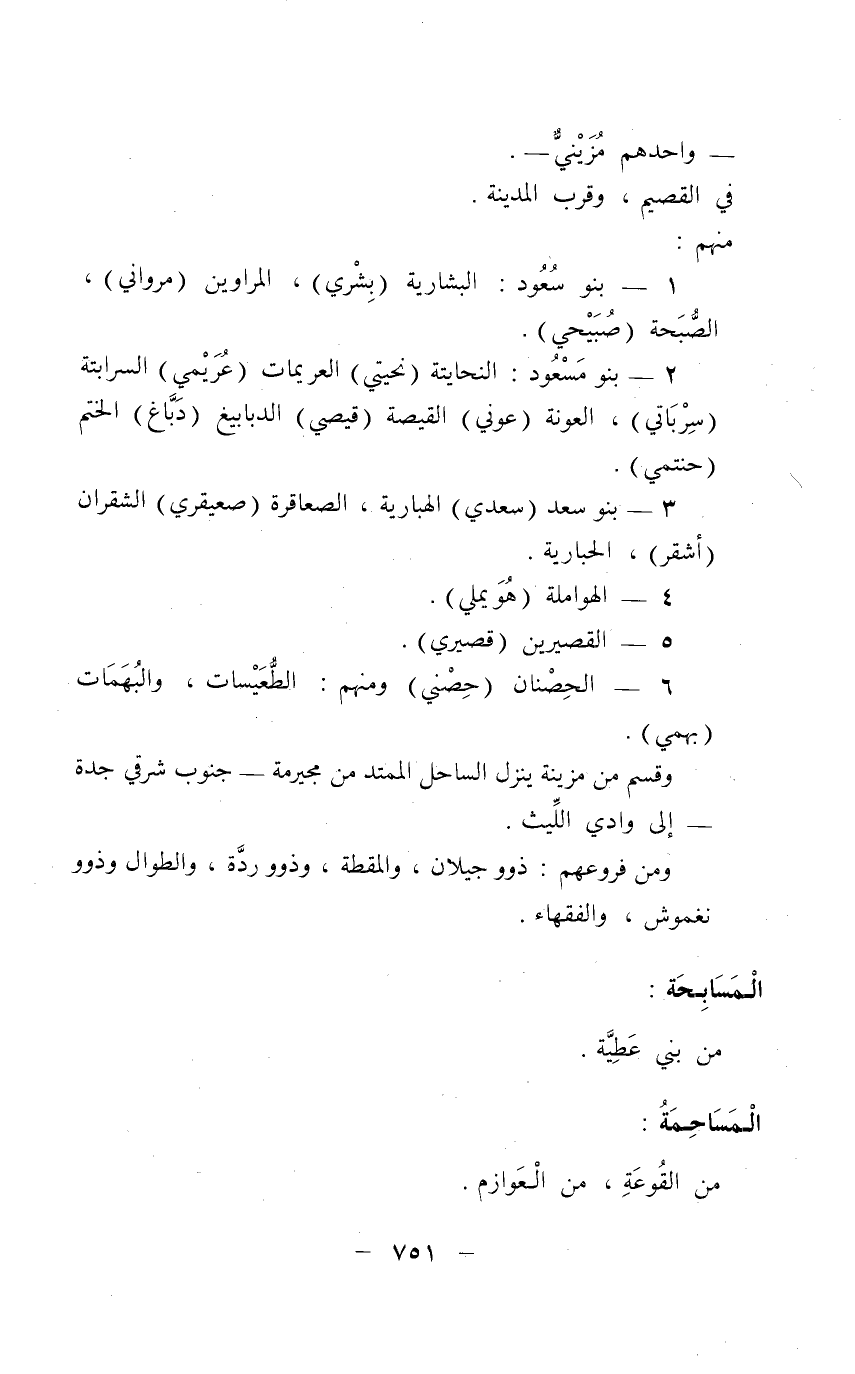 — واحدهم مُزَيْنيٌّ — .
في القصيم ، وقرب المدينة .
منهم :
١ — بنو سُعُود : البشارية (بِشْري) ، المراوين (مرواني) ،
الصُّبَحة (صُبَيْحي) .
٢ — بنو مَسْعُود : النحايتة (نحيتي) العريمات (عُرَيْمي) السرابتة
(سِرْبَاتي) ، العونة (عوني) القيصة (قيصي) الدبابيغ (دَبَّاغ) الختم
(حنتمي) .
٣ — بنو سعد (سعدي) الهبارية ، الصعاقرة (صعيقري) الشقران
(أشقر) ، الحبارية .
٤ — الهواملة (هُوَيملي) .
٥ — القصيرين (قصيري) .
٦ — الحِصْنان (حِصْني) ومنهم : الطُّعَيْسات ، والبُهَمَات
(بهمي) .
وقسم من مزينة ينزل الساحل الممتد من مجيرمة — جنوب شرقي جدة
— إلى وادي اللِّيث .
ومن فروعهم : ذوو جيلان ، والمقطة ، وذوو ردَّة ، والطوال وذوو
نغموش ، والفقهاء .
الْمَسَابِحَة :
من بني عَطِيَّة .
الْمَسَاحِمَةُ :
من القُوعَةِ ، من الْعَوازم .
— ٧٥١ —